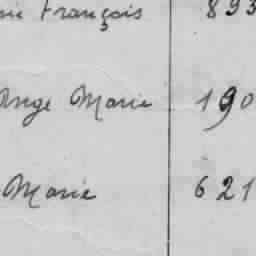 François 893
Ange Marie 190
Marie 621